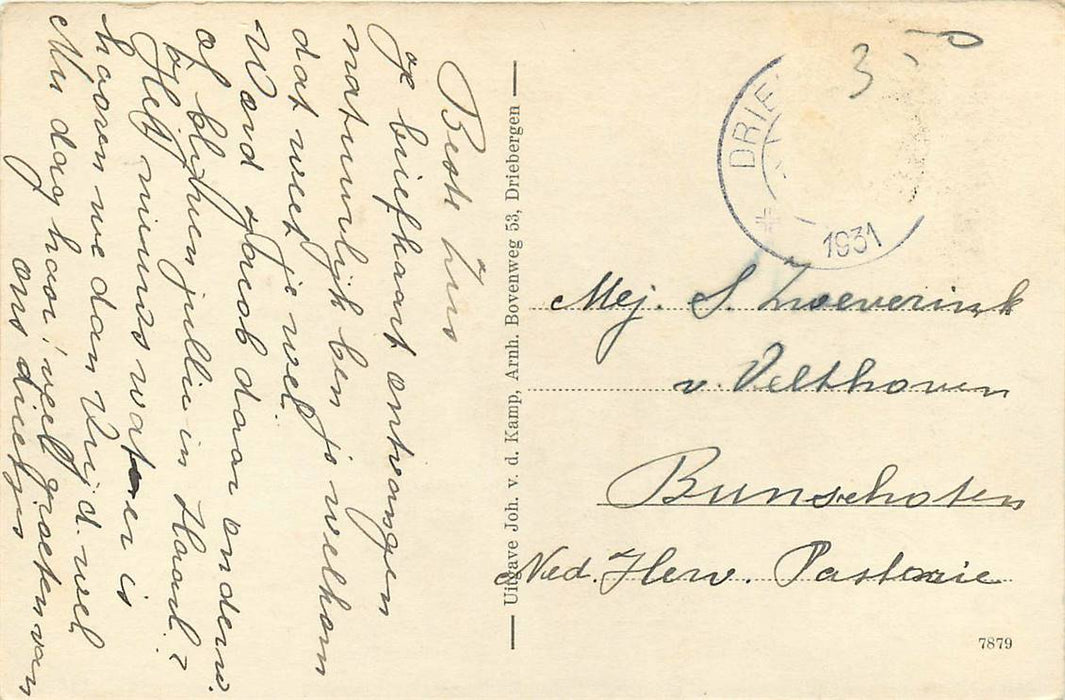 Beste Zus
Je briefkaart ontvangen
natuurlijk ben je welkom
dat weet je wel.
Word Jacob daar onderw.
of blijven jullie in Haarl.?
Het nieuws wat er is
hooren we dan Vrijd. wel
Nu dag hoor! veel groeten van
ons dietjes
Uitgave Joh. v. d. Kamp, Arnh. Bovenweg 53, Driebergen
3,50
DRIE
1931
Mej. S. Zweverink
v. Velthoven
Bunschoten
Ned. Herv. Pastorie
7879